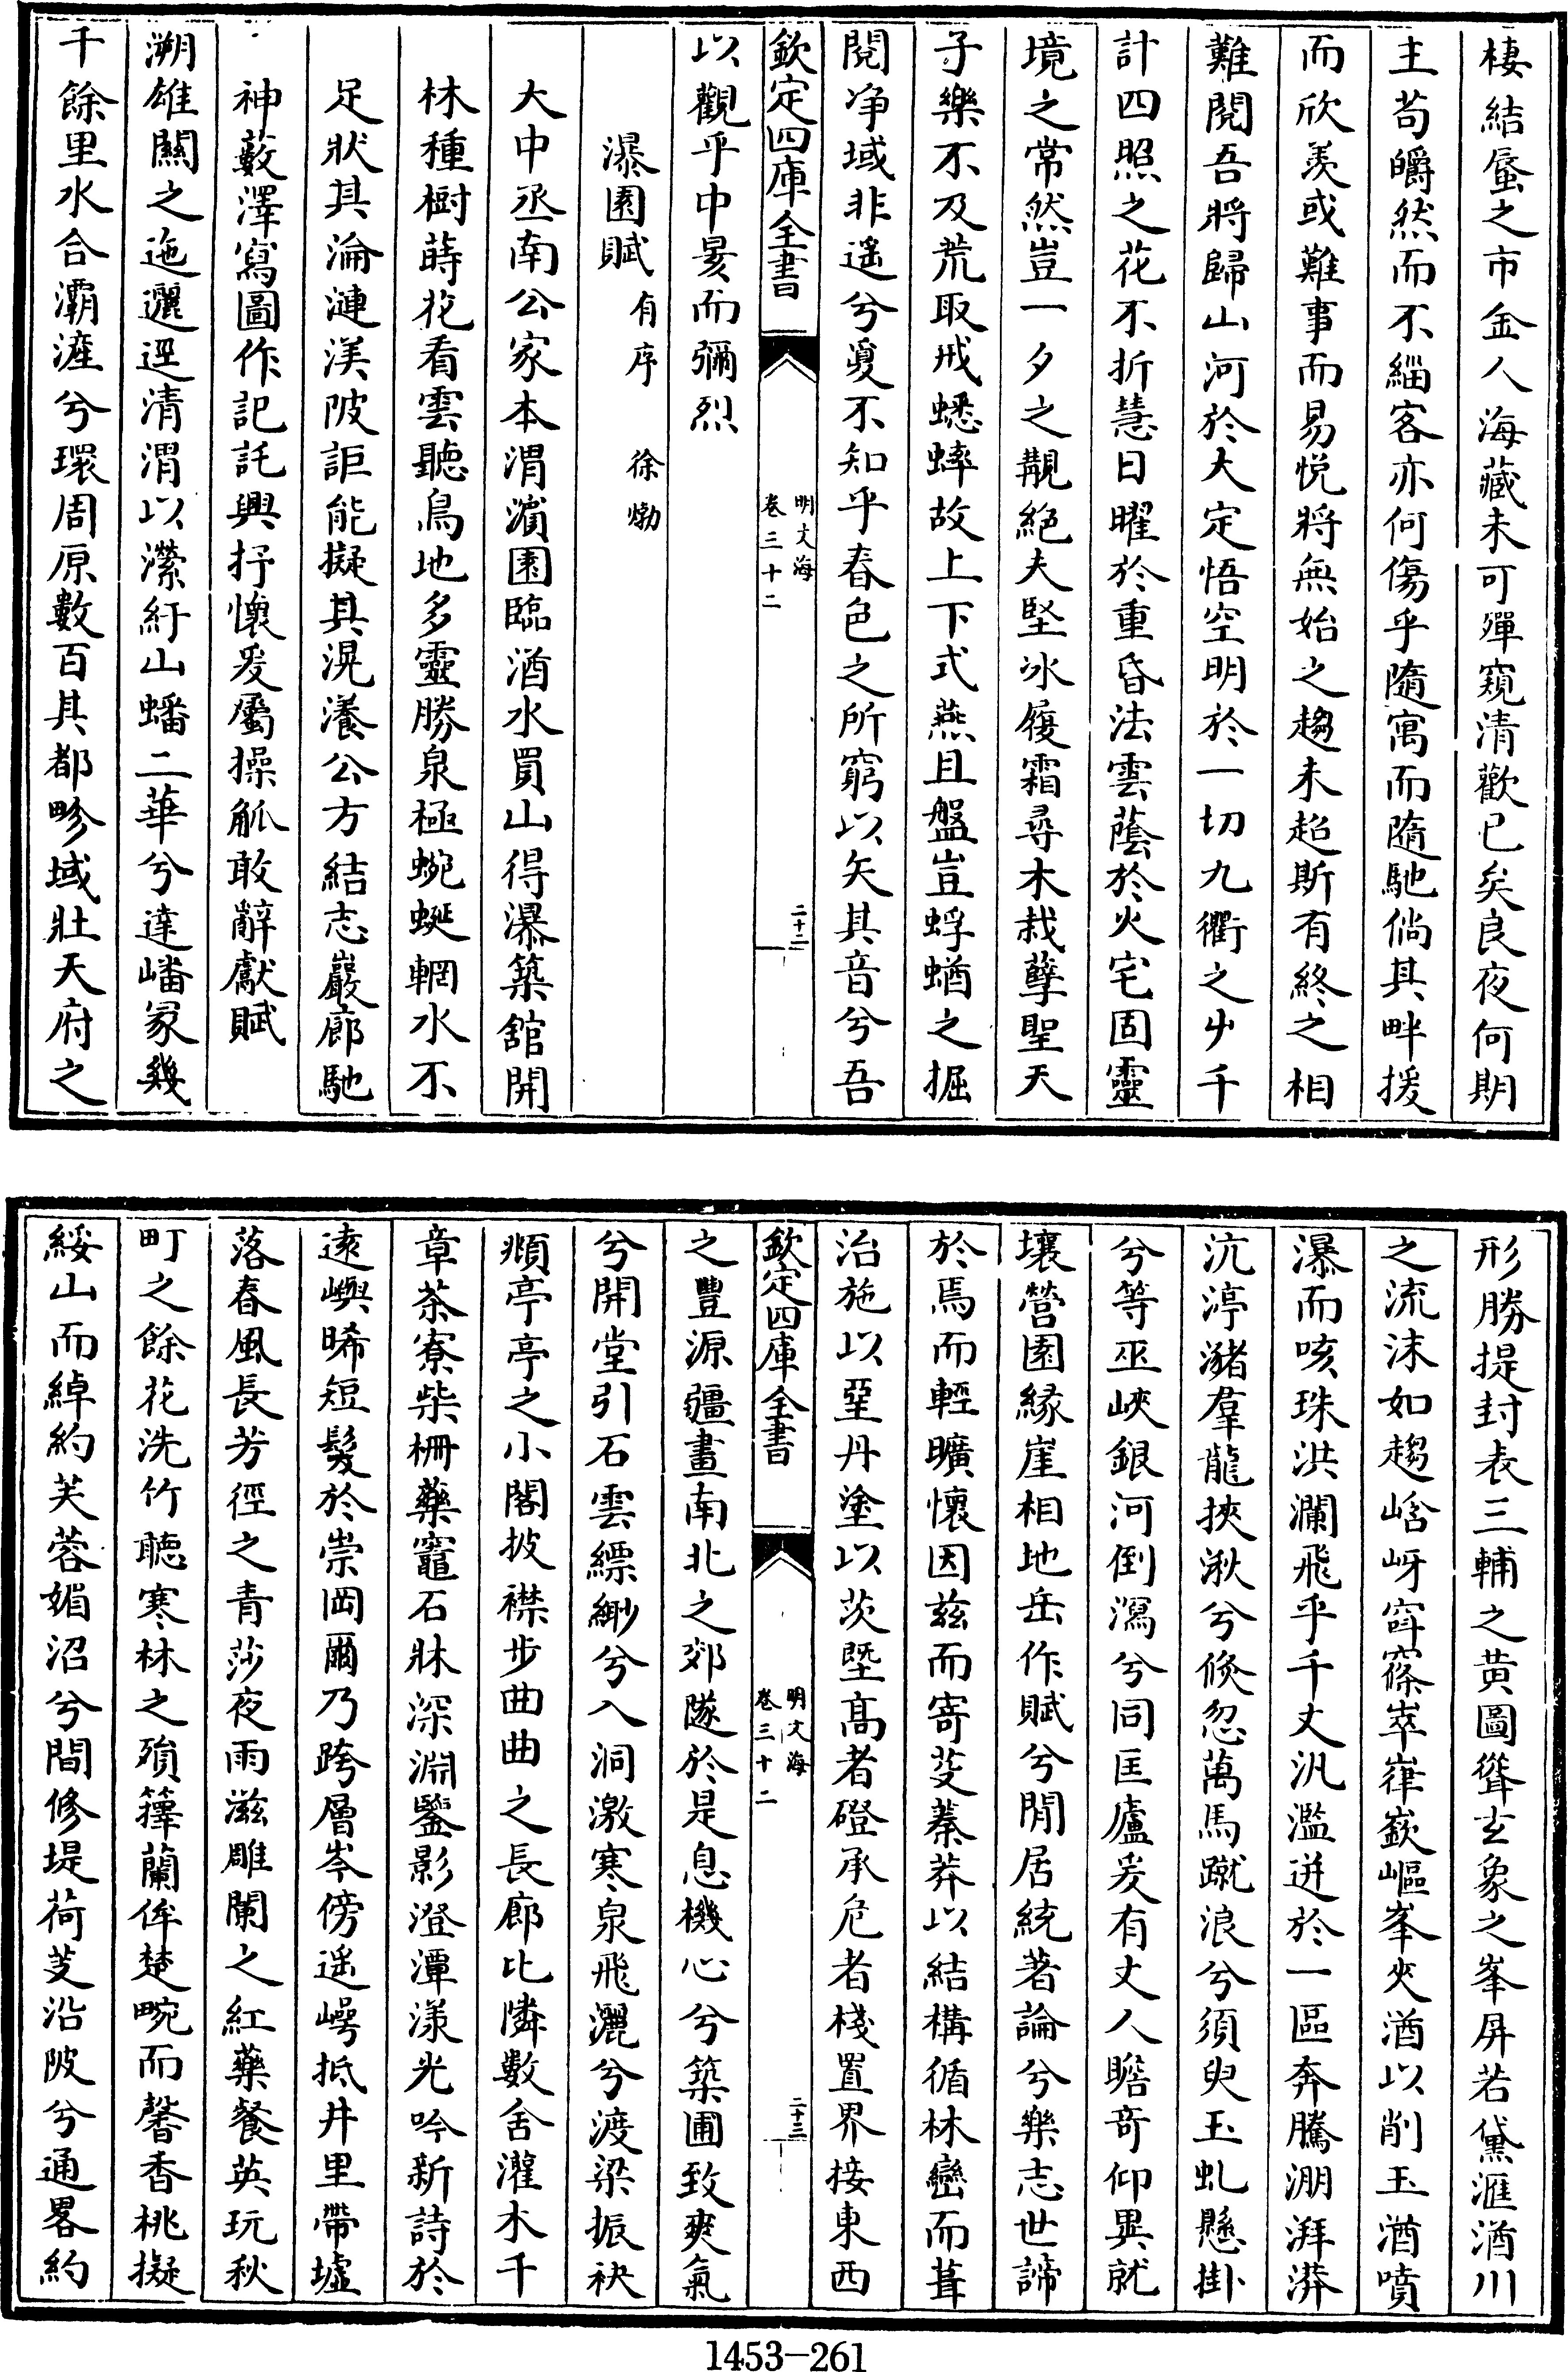 棲結蜃之市金人海藏未可殫窺清歡已矣良夜何期
主苟皭然而不緇客亦何傷乎隨寓而隨馳倘其畔援
而欣羨或難事而易悅將無始之趨未超斯有終之相
難閱吾將歸山河於大定悟空明於一切九衢之屮千
計四照之花不折慧日曜於重昏法雲蔭於火宅固靈
境之常然豈一夕之覩絕夫堅冰履霜尋木栽孽聖天
子樂不及荒取戒蟋蟀故上下式燕且盤豈蜉蝤之掘
閱净域非遥兮夐不知乎春色之所窮以矢其音兮吾
欽定四庫全書
明文海
卷三十二
二十二
以觀乎中晸而彌烈
瀑園賦有序 徐㶿
大中丞南公家本渭濵園臨湭水買山得瀑築舘開
林種樹蒔花看雲聽鳥地多靈勝泉極蜿蜒輞水不
足狀其淪漣渼陂詎能擬其滉瀁公方結志巖廊馳
神藪澤寫圖作記託興抒懷爰屬操觚敢辭獻賦
溯雄關之迤邐逕清渭以瀠紆山蟠二華兮達嶓冢幾
千餘里水合灞滻兮環周原數百其都畛域壯天府之
形勝提封表三輔之黄圖聳玄象之峯屏若黛滙湭川
之流沫如趨峆岈窅窱崒嵂嶔嶇峯夾湭以削玉湭噴
瀑而咳珠洪瀾飛乎千丈汎濫迸於一區奔騰淜湃漭
沆渟瀦羣龍挾湫兮倐忽萬馬蹴浪兮須臾玉虬懸掛
兮等巫峽銀河倒瀉兮同匡廬爰有丈人瞻竒仰異就
壤營園緣崖相地岳作賦兮閒居統著論兮樂志世諦
於焉而輕曠懷因兹而寄芟蓁莽以結構循林巒而葺
治施以堊丹塗以茨墍髙者磴承危者棧置界接東西
欽定四庫全書
明文海
卷三十二
二十三
之豐源疆畫南北之郊隧於是息機心兮築圃致爽氣
兮開堂引石雲縹緲兮入洞激寒泉飛灑兮渡梁振袂
頫亭亭之小閣披襟步曲曲之長廊比隣數舍灌木千
章茶寮柴柵藥竈石牀深淵鑒影澄潭漾光吟新詩於
逺嶼晞短髮於崇岡爾乃跨層岑傍遥崿抵井里帶墟
落春風長芳徑之青莎夜雨滋雕闌之紅藥餐英玩秋
町之餘花洗竹聽寒林之殞籜蘭侔楚畹而馨香桃擬
綏山而綽約芙蓉媚沼兮間修堤荷芰沿陂兮通畧約
1453-261